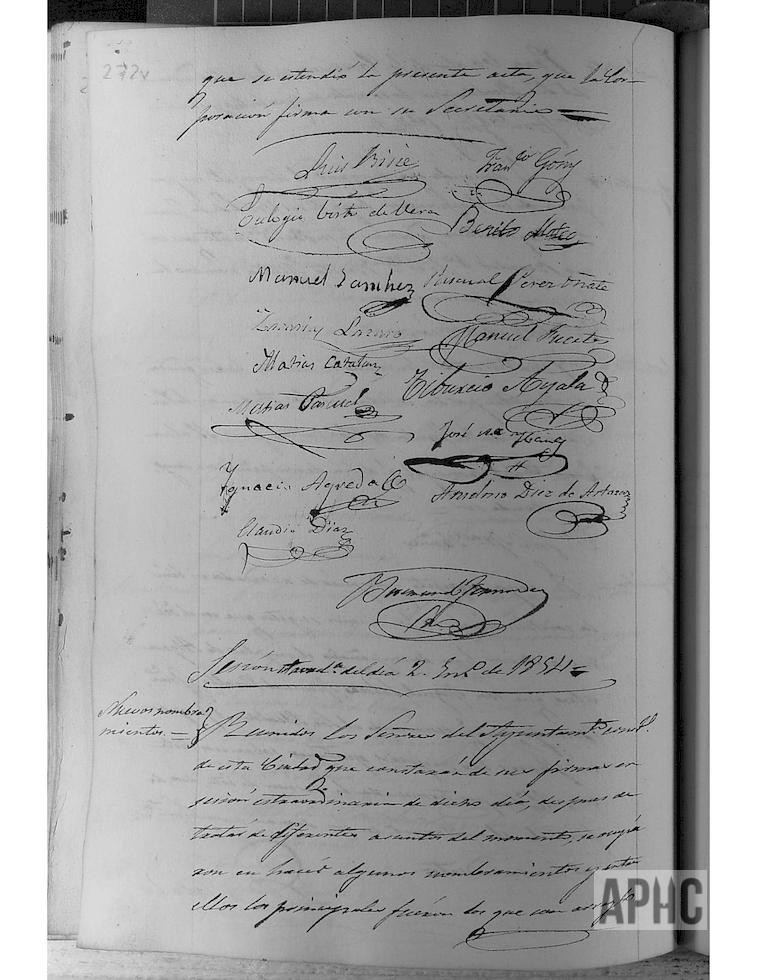 272v
que se estendió la presente acta, que la Cor-
poración firma con su Secretario
Luis Franco Góñi
Eulogio de Vera Benito Mateo
Manuel Sanchez Pascual Perez Oñate
Zacarias Lazaro Manuel
Matias Catalan Tiburcio Ayala
Matias Pascual
José
Ygnacio Agreda Anselmo Diez de
Claudio Diaz
Sesión del día 2. de 1854
Nuevos nombra
mientos.
Reunidos los Señores del Ayuntamto. const.l
de esta Ciudad que constarán de sus firmas en
sesión estraordinaria de dicho día, despues de
tratar de diferentes asuntos del momento, se ocupa
ron en hacer algunos nombramientos y entre
ellos los principales fueron los que con
APHC